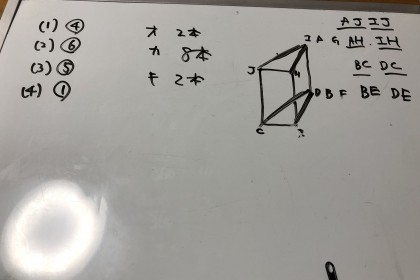 (1) ④
(2) ⑥
(3) ⑤
(4) ①
オ 2本
カ 8本
キ 2本
I A G
J
H
D B F
C
AJ IJ
AH . IH
BC DC
BE DE